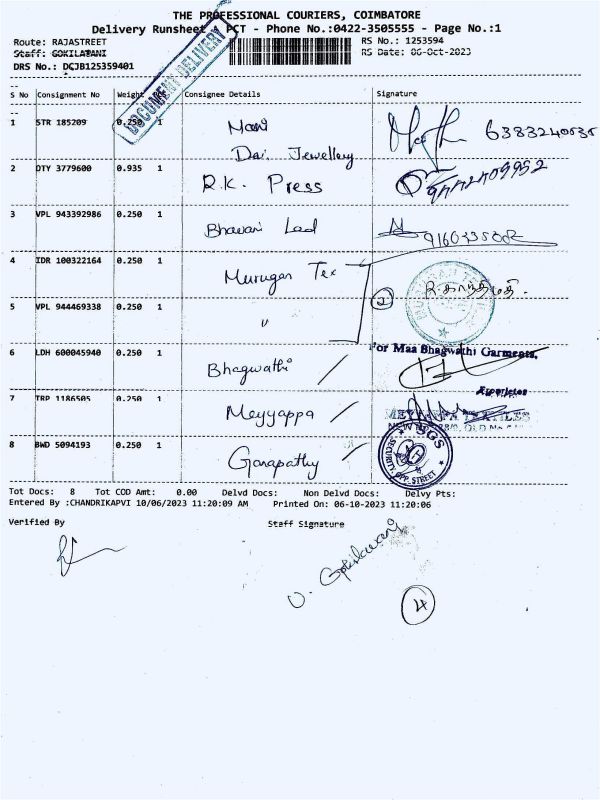 THE PROFESSIONAL COURIERS, COIMBATORE
Delivery Runsheet PCT - Phone No.:0422-3505555 - Page No.:1
Route: RAJASTREET
RS No.: 1253594
Staff: GOKILAPANI
RS Date: 06-Oct-2023
DRS No.: DCJB125359401
DOCUMENT DELIVERY
S No Consignment No Weight Pcs Consignee Details Signature
1 STR 185209 0.250 1 Mani
Dai. Jewellery
2 DTY 3779600 0.935 1 R.K. Press
3 VPL 943392986 0.250 1 Bhavani Lad
4 IDR 100322164 0.250 1 Murugan Tex
2
5 VPL 944469338 0.250 1 "
For Maa Bhagwathi Garments,
6 LDH 600045940 0.250 1 Bhagwathi /
Proprietor
7 TRP 1186505 0.250 1 Meyyappa /
MEYYAPPA TEXTILES
8 BWD 5094193 0.250 1 Ganapathy /
SGS
SECURITY OPP. STREET
Tot Docs: 8 Tot COD Amt: 0.00 Delvd Docs: Non Delvd Docs: Delvy Pts:
Entered By :CHANDRIKAPVI 10/06/2023 11:20:09 AM Printed On: 06-10-2023 11:20:06
Verified By Staff Signature
4